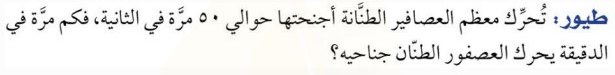 طيور: تُحرِّك معظم العصافير الطنَّانة أجنحتها حوالي ٥٠ مرَّة في الثانية، فكم مرَّة في
الدقيقة يحرك العصفور الطنّان جناحيه؟